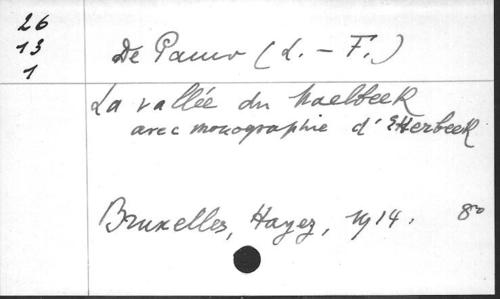 26
13
1
De Pauw (L.-F.)
La vallée du Maelbeek
avec monographie d'Etterbeek
Bruxelles, Hayez, 1914. 8º